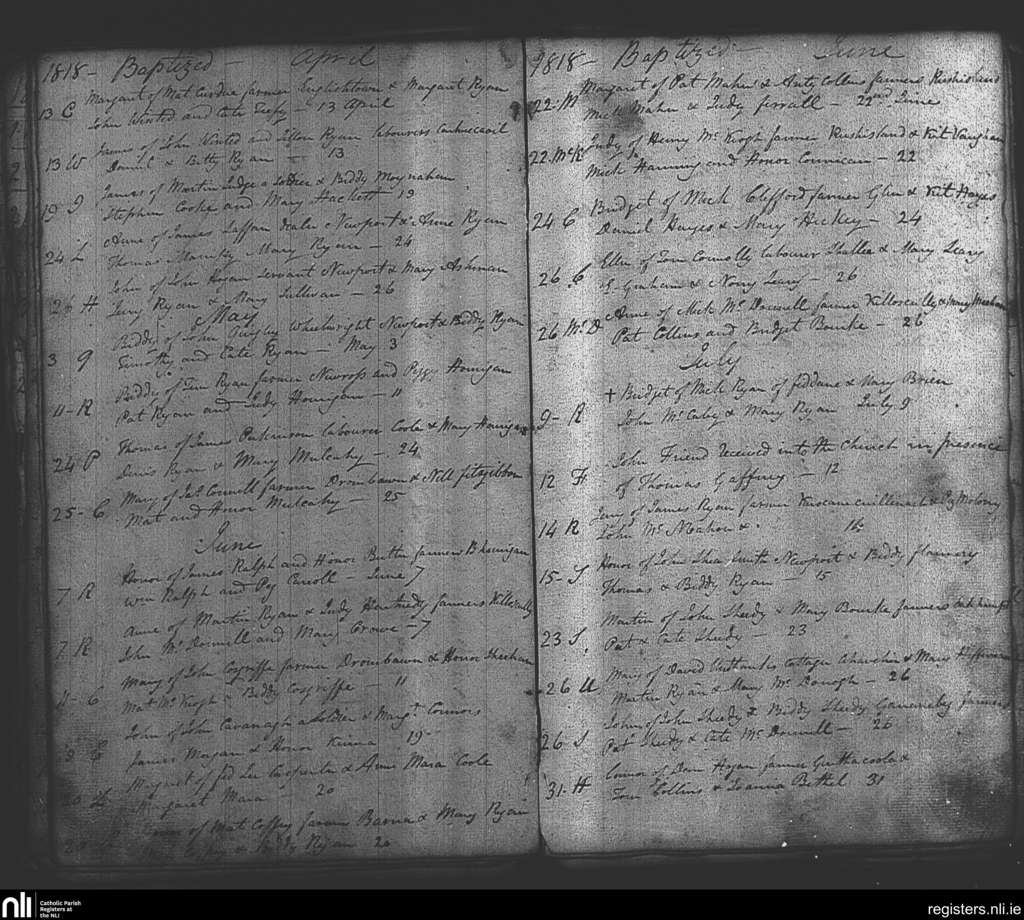 1818 - Baptized - April
Margaret of Mat Curdue farmer Englishtown & Margaret Ryan
13 C John Winted and Cate 13 April
James of John Winted and Ellen Ryan labourers
13 W Daniel C & Betty Ryan - 13
James of Martin Judge a Soldier & Biddy Moynahan
19 J Stephen Cooke and Mary Hackett - 19
Anne of James Laffan dealer Newport & Anne Ryan
24 L Thomas & Mary Ryan - 24
John of John Hogan Servant Newport & Mary Ashman
26 H Jerry Ryan & Mary Sullivan - 26
May
Biddy of John Quigley Wheelwright Newport & Biddy Ryan
3 Q Timothy and Cate Ryan - May 3
Biddy of Tim Ryan farmer Newross and Peggy Hourigan
11 - R Pat Ryan and Judy Hourigan - 11
Thomas of James Parkinson labourer Coole & Mary Hourigan
24 P Denis Ryan & Mary Mulcahy - 24
Mary of Jas Connell farmer Drombawn & Nell fitzgibbon
25 - C Mat and Honor Mulcahy - 25
June
Honor of James Ralph and Honor Butler farmer
7 R Wm Ralph and Peg Carroll - June 7
Anne of Martin Ryan & Judy farmers Killoscully
7 R John McDonnell and Mary Crowe - 7
Mary of John Cosgriffe farmer Drombawn & Honor Sheehan
11 - C Mat McKeogh & Biddy Cosgriffe - 11
John of John Cavanagh a Soldier & Margt Connors
James Morgan & Honor Kinna 19
Margret of Carpenter & Anne Mara Coole
Margaret Mara 20
of Mat Coffey farmer Barna & Mary Ryan
& Biddy Ryan 20
1818 - Baptized - June
Margaret of Pat Maher & Anty Collins farmers Rushisland
22 - M Mick Maher & Judy ferrall - 22nd June
Judy of Henry McKeogh farmer Rushisland & Kit Vaughan
22. McK Mick Hanning and Honor - 22
Bridget of Mick Clifford farmer Glin & Kit Hayes
24 C Daniel Hayes & Mary Hickey - 24
Ellen of Tom Connolly labourer Shallee & Mary Leary
26 C Graham & Nory Leary - 26
Anne of Mick McDonnell farmer Killoscully & Mary Meehan
26 McD Pat Collins and Bridget Bourke - 26
July
+ Bridget of Mick Ryan of feddane & Mary Brien
9 - R John McCaby & Mary Ryan July 9
John Friend received into the Church in presence
12 F of Thomas Gaffney - 12
Jerry of James Ryan farmer & Peg Molony
14 R John McMahon & 14
Honor of John Shea Smith Newport & Biddy flannery
15 - S Thomas & Biddy Ryan - 15
Martin of John Sheedy & Mary Bourke farmers
23 S Pat & Cate Sheedy - 23
Mary of David Cottager & Mary Heffernan
26 U Martin Ryan & Mary McDonogh - 26
John of John Sheedy & Biddy Sheedy farmers
26 - S Pat Sheedy & Cate McDonnell - 26
Connor of Dan Hogan farmer &
31 - H Tom Collins & Joanna Bethel 31
nli Catholic Parish
Registers at
the NLI
registers.nli.ie